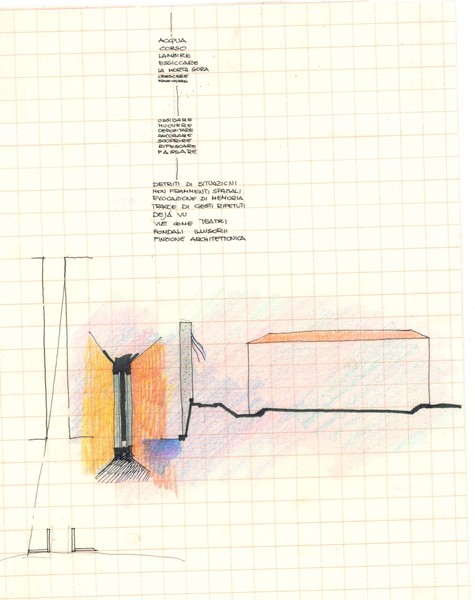 ACQUA
CORSO
LAMBIRE
ESSICCARE
LA MORTA GORA
CRESCERE
OSSIDARE
MUOVERE
DEPOSITARE
ANCORARE
SCOPRIRE
RIPESCARE
PASSARE
DETRITI DI SITUAZIONI
NON FRAMMENTI SPAZIALI
EVOCAZIONE DI MEMORIA
TRACCE DI GESTI RIPETUTI
DEJÀ VU
VIE COME TEATRI
FONDALI ILLUSORII
FINZIONE ARCHITETTONICA